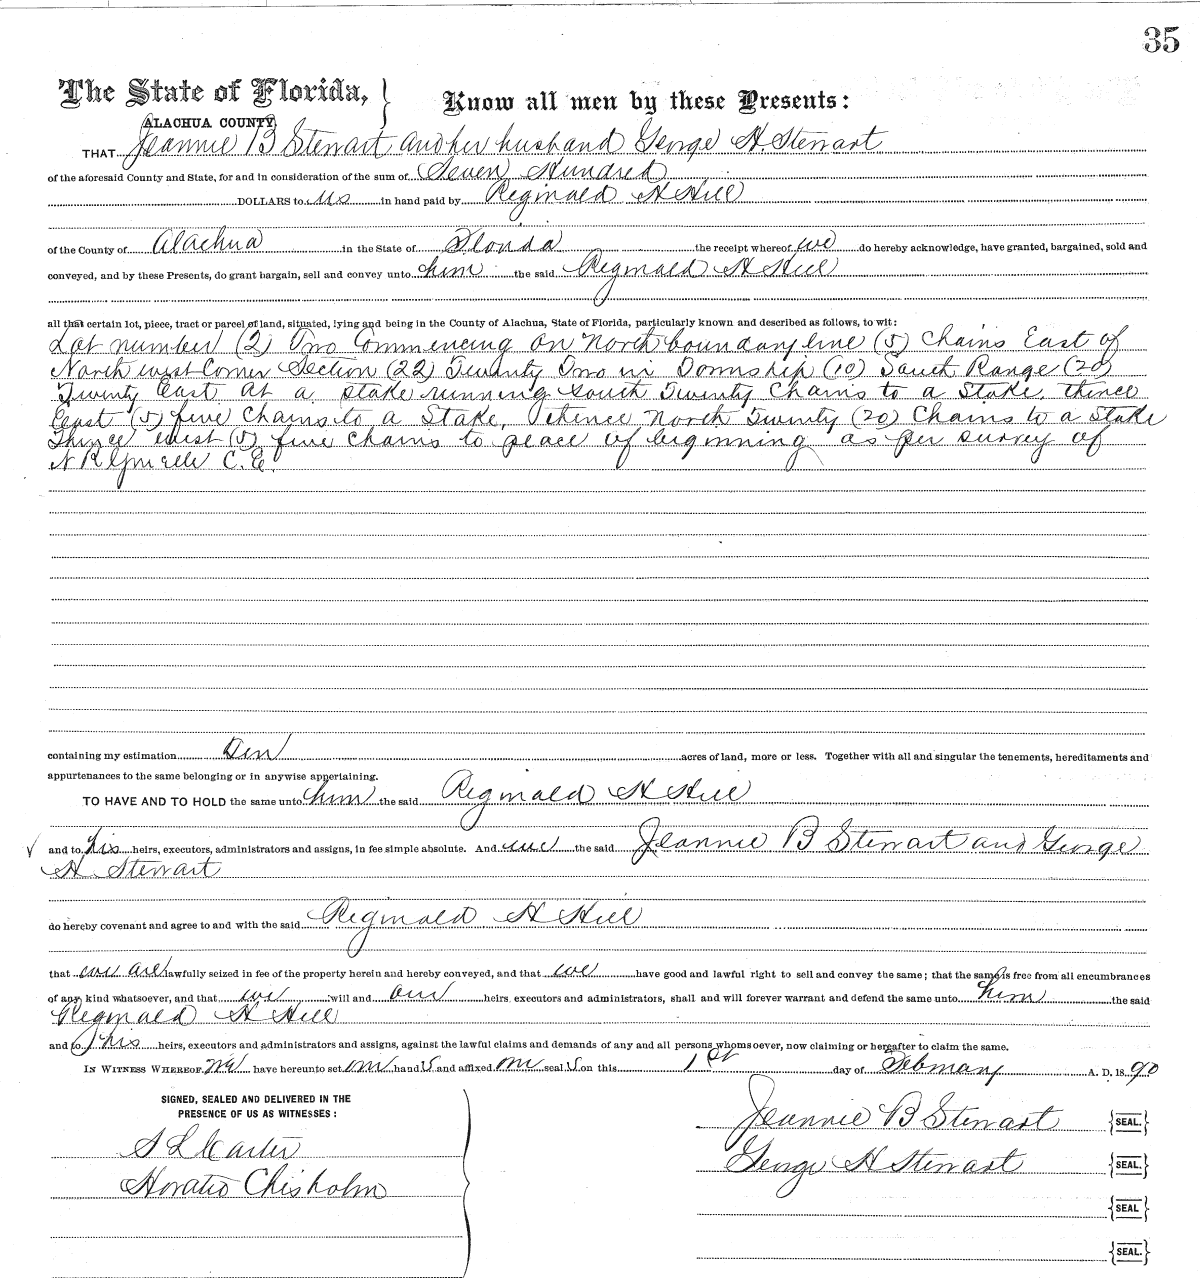 35
The State of Florida, } Know all men by these Presents:
ALACHUA COUNTY.
THAT Jeannie B Stewart and her husband George H. Stewart
of the aforesaid County and State, for and in consideration of the sum of Seven Hundred
DOLLARS to us in hand paid by Reginald H Hill
of the County of Alachua in the State of Florida the receipt whereof we do hereby acknowledge, have granted, bargained, sold and
conveyed, and by these Presents, do grant bargain, sell and convey unto him the said Reginald H Hill
all that certain lot, piece, tract or parcel of land, situated, lying and being in the County of Alachua, State of Florida, particularly known and described as follows, to wit:
Lot number (2) Two Commencing on North boundary line (5) Chains East of
North west Corner Section (22) Twenty Two in Township (10) South Range (20)
Twenty East at a stake running south Twenty Chains to a Stake, thence
East (5) five Chains to a Stake, thence North Twenty (20) Chains to a Stake
Thence west (5) five Chains to place of beginning as per survey of
N R C.E.
containing my estimation Ten acres of land, more or less. Together with all and singular the tenements, hereditaments and
appurtenances to the same belonging or in anywise appertaining.
TO HAVE AND TO HOLD the same unto him the said Reginald H Hill
and to his heirs, executors, administrators and assigns, in fee simple absolute. And we the said Jeannie B Stewart and George
H. Stewart
do hereby covenant and agree to and with the said Reginald H Hill
that we are lawfully seized in fee of the property herein and hereby conveyed, and that we have good and lawful right to sell and convey the same; that the same is free from all encumbrances
of any kind whatsoever, and that we will and our heirs executors and administrators, shall and will forever warrant and defend the same unto him the said
Reginald H Hill
and to his heirs, executors and administrators and assigns, against the lawful claims and demands of any and all persons whomsoever, now claiming or hereafter to claim the same.
IN WITNESS WHEREOF, we have hereunto set our hand s and affixed our seal s on this 1st day of February A. D. 18 90
SIGNED, SEALED AND DELIVERED IN THE
PRESENCE OF US AS WITNESSES:
Jeannie B Stewart {SEAL.}
S L Carter
George H Stewart {SEAL.}
Horatio Chisholm
{SEAL}
{SEAL.}